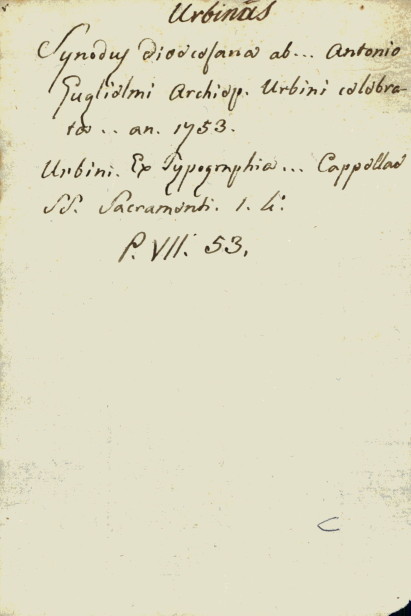 Urbinas
Synodus Dioecesana ab... Antonio
Guglielmi Archiep. Urbini celebra-
ta .. an. 1753.
Urbini. Ex Typographia ... Cappellae
SS. Sacramenti. 1. 4:
P. VII. 53.